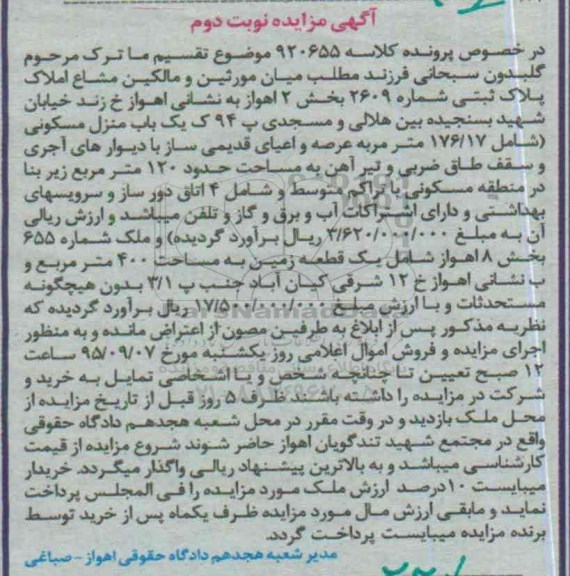 آگهی مزایده نوبت دوم
در خصوص پرونده کلاسه ۹۲۰۶۵۵ موضوع تقسیم ما ترک مرحوم
گلبدون سبحانی فرزند مطلب میان مورثین و مالکین مشاع املاک
پلاک ثبتی شماره ۲۶۰۹ بخش ۲ اهواز به نشانی اهواز خ زند خیابان
شهید بسنجیده بین هلالی و مسجدی پ ۹۴ ک یک باب منزل مسکونی
(شامل ۱۷۶/۱۷ متر مربه عرصه و اعیای قدیمی ساز با دیوار های آجری
و سقف طاق ضربی و تیر آهن به مساحت حدود ۱۲۰ متر مربع زیر بنا
در منطقه مسکونی با تراکم متوسط و شامل ۴ اتاق دور ساز و سرویسهای
بهداشتی و دارای اشتراکات آب و برق و گاز و تلفن میباشد و ارزش ریالی
آن به مبلغ ۳/۶۲۰/۰۰۰/۰۰۰ ریال برآورد گردیده) و ملک شماره ۶۵۵
بخش ۸ اهواز شامل یک قطعه زمین به مساحت ۴۰۰ متر مربع و
ب نشانی اهواز خ ۱۲ شرقی کیان آباد جنب پ ۳/۱ بدون هیچگونه
مستحدثات و با ارزش مبلغ ۱۷/۵۰۰/۰۰۰/۰۰۰ ریال برآورد گردیده که
نظریه مذکور پس از ابلاغ به طرفین مصون از اعتراض مانده و به منظور
اجرای مزایده و فروش اموال اعلامی روز یکشنبه مورخ ۹۵/۰۹/۰۷ ساعت
۱۲ صبح تعیین تا چنانچه شخص و یا اشخاصی تمایل به خرید و
شرکت در مزایده را داشته باشند ظرف ۵ روز قبل از تاریخ مزایده از
محل ملک بازدید و در وقت مقرر در محل شعبه هجدهم دادگاه حقوقی
واقع در مجتمع شهید تندگویان اهواز حاضر شوند شروع مزایده از قیمت
کارشناسی میباشد و به بالاترین پیشنهاد ریالی واگذار میگردد. خریدار
میبایست ۱۰درصد ارزش ملک مورد مزایده را فی المجلس پرداخت
نماید و مابقی ارزش مال مورد مزایده ظرف یکماه پس از خرید توسط
برنده مزایده میبایست پرداخت گردد.
مدیر شعبه هجدهم دادگاه حقوقی اهواز - صباغی